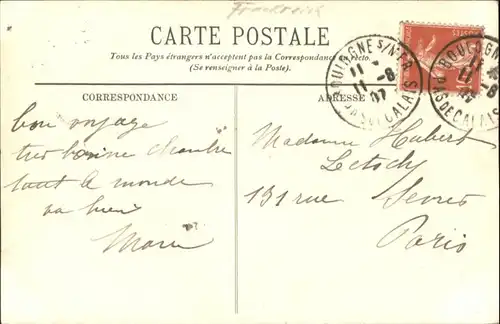 Frankreich
CARTE POSTALE
Tous les Pays étrangers n'acceptent pas la Correspondance au recto.
(Se renseigner à la Poste).
CORRESPONDANCE
ADRESSE
BOULOGNE S/MER
11 -8
07
PAS DE CALAIS
BOULOGNE
11 -8
07
PAS DE CALAIS
POSTES
bon voyage
tres bonne chambre
tout le monde
va bien
Marie
Madame Hubert
131 rue
Sevres
Paris